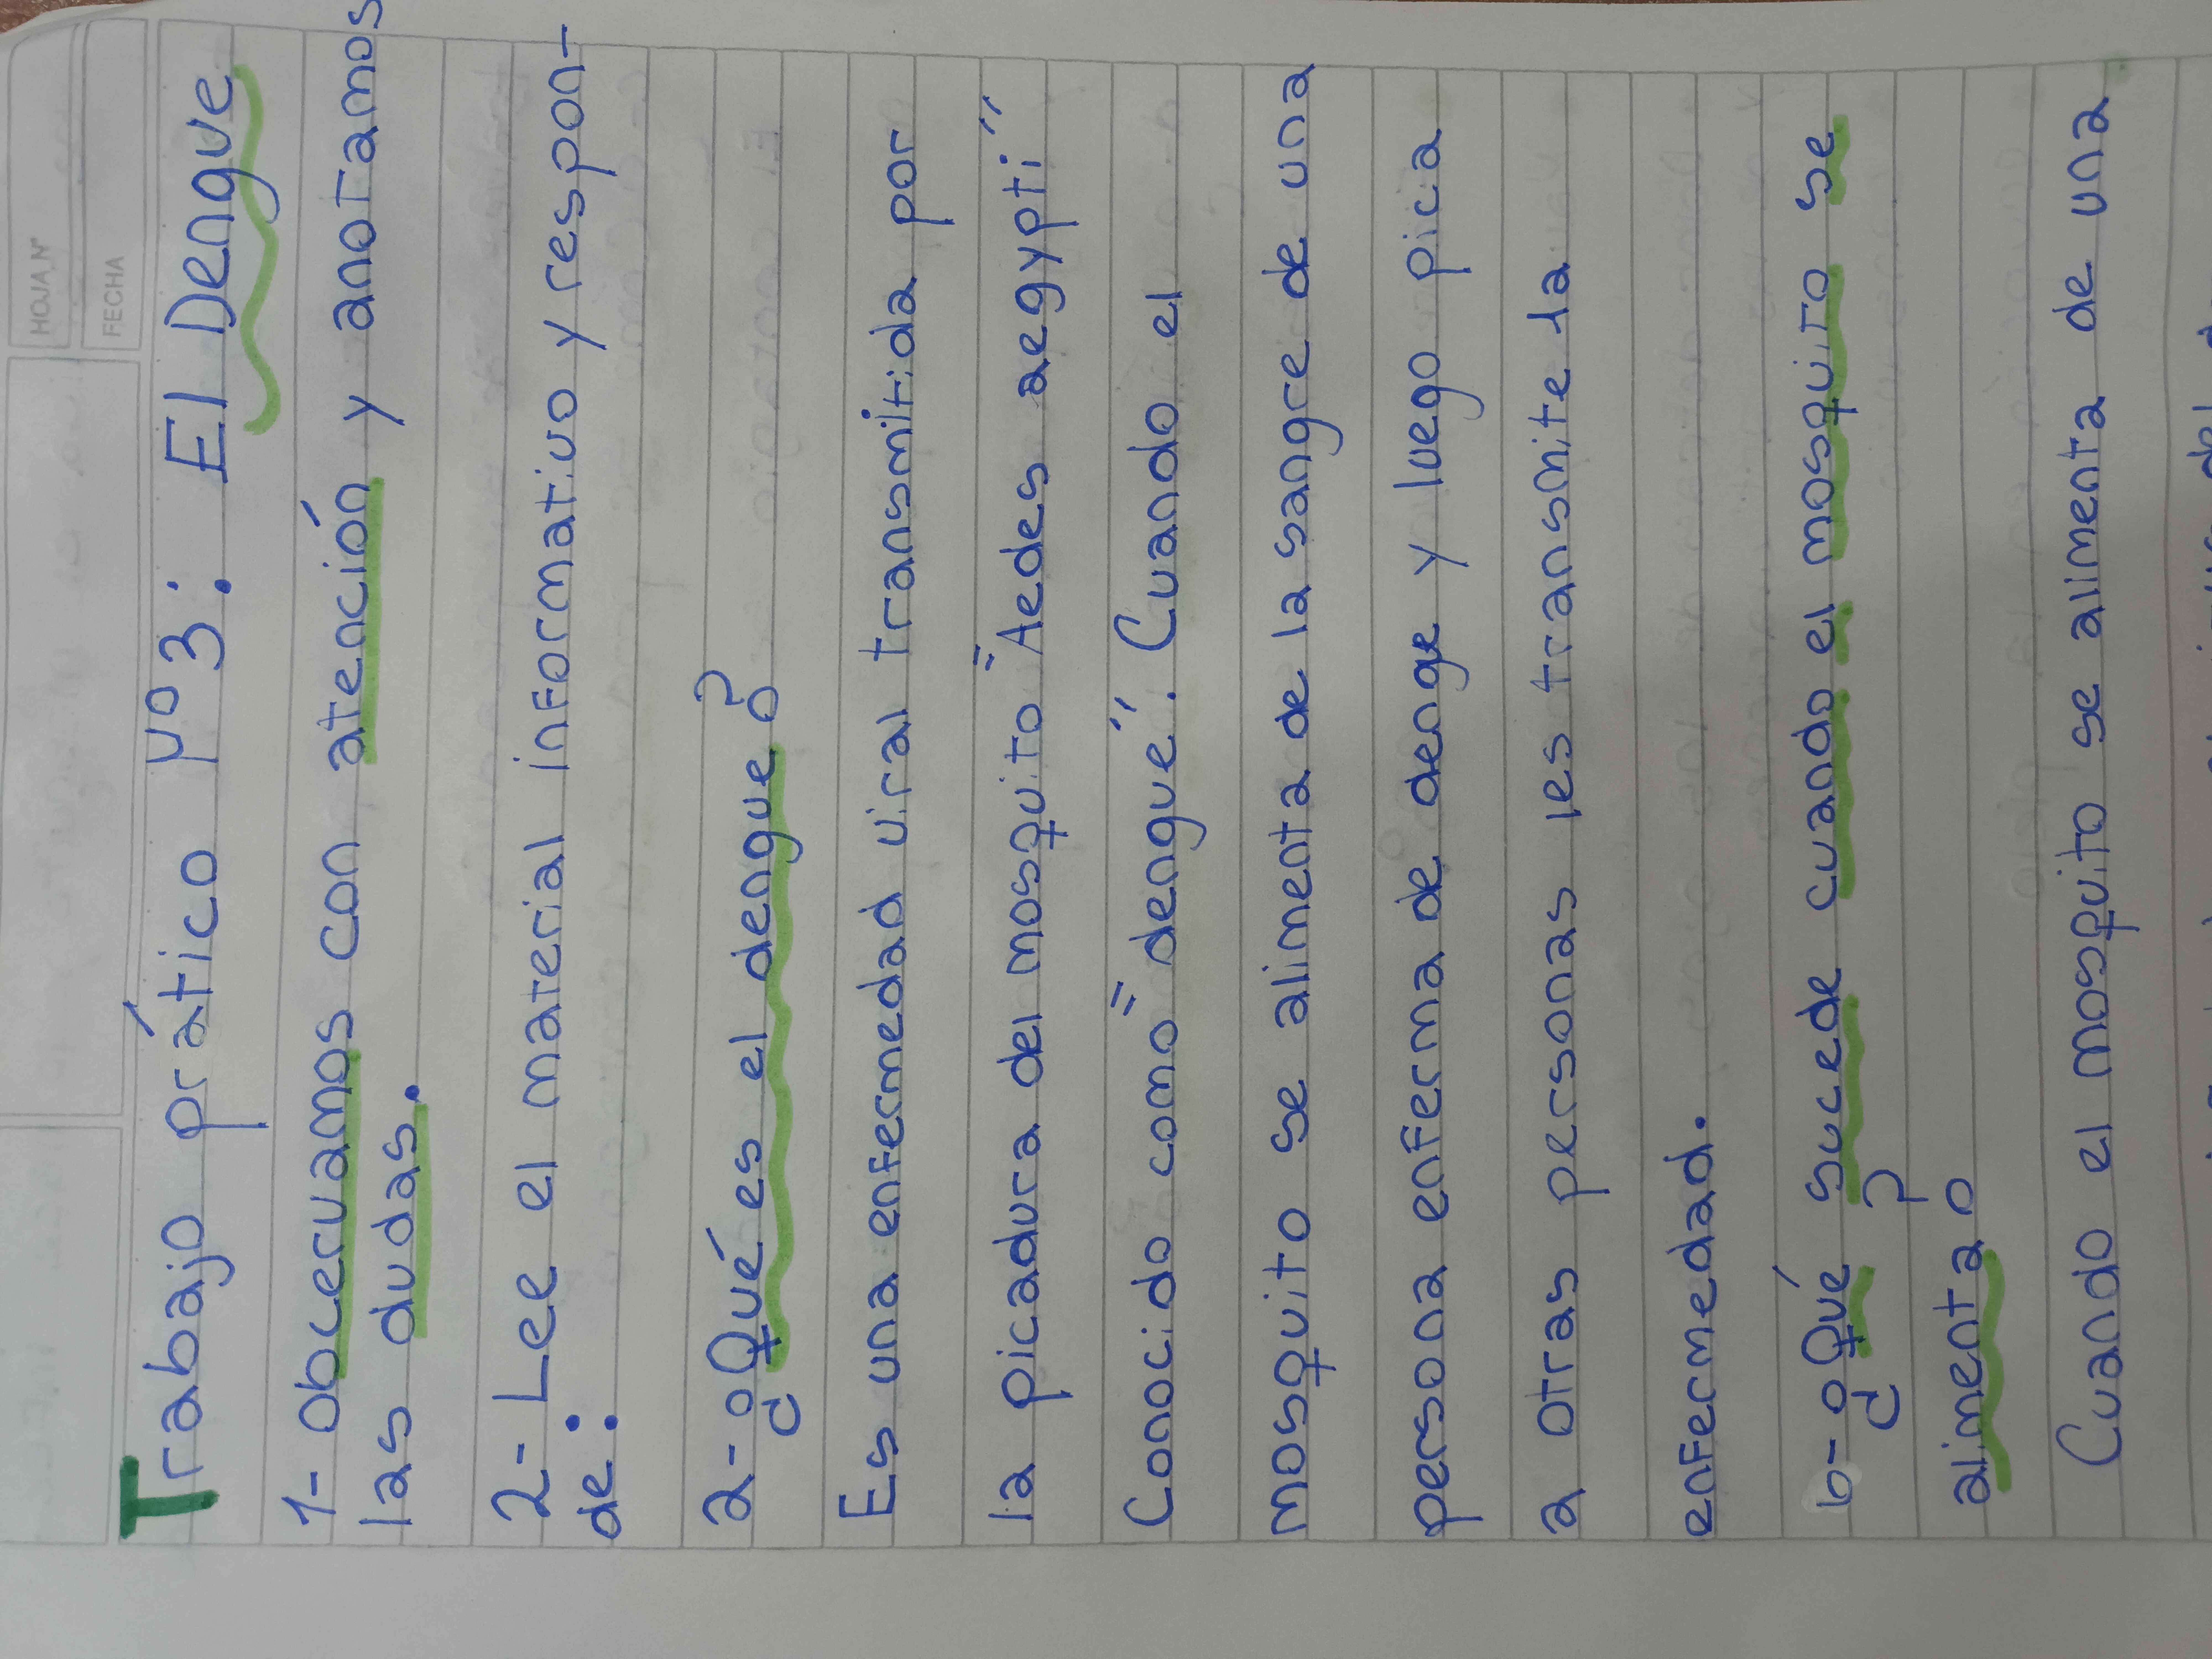 HOJA Nº
FECHA
Trabajo prático Nº3: El Dengue
1- Obcervamos con atención y anotamos
las dudas.
2- Lee el material informativo y respon-
de:
a- ¿Qué es el dengue?
Es una enfermedad viral transmitida por
la picadura del mosquito "Aedes aegypti"
Conocido como "dengue". Cuando el
mosquito se alimenta de la sangre de una
persona enferma de denge y luego pica
a otras personas les transmite la
enfermedad.
b- ¿Qué sucede cuando el mosquito se
alimenta?
Cuando el mosquito se alimenta de una